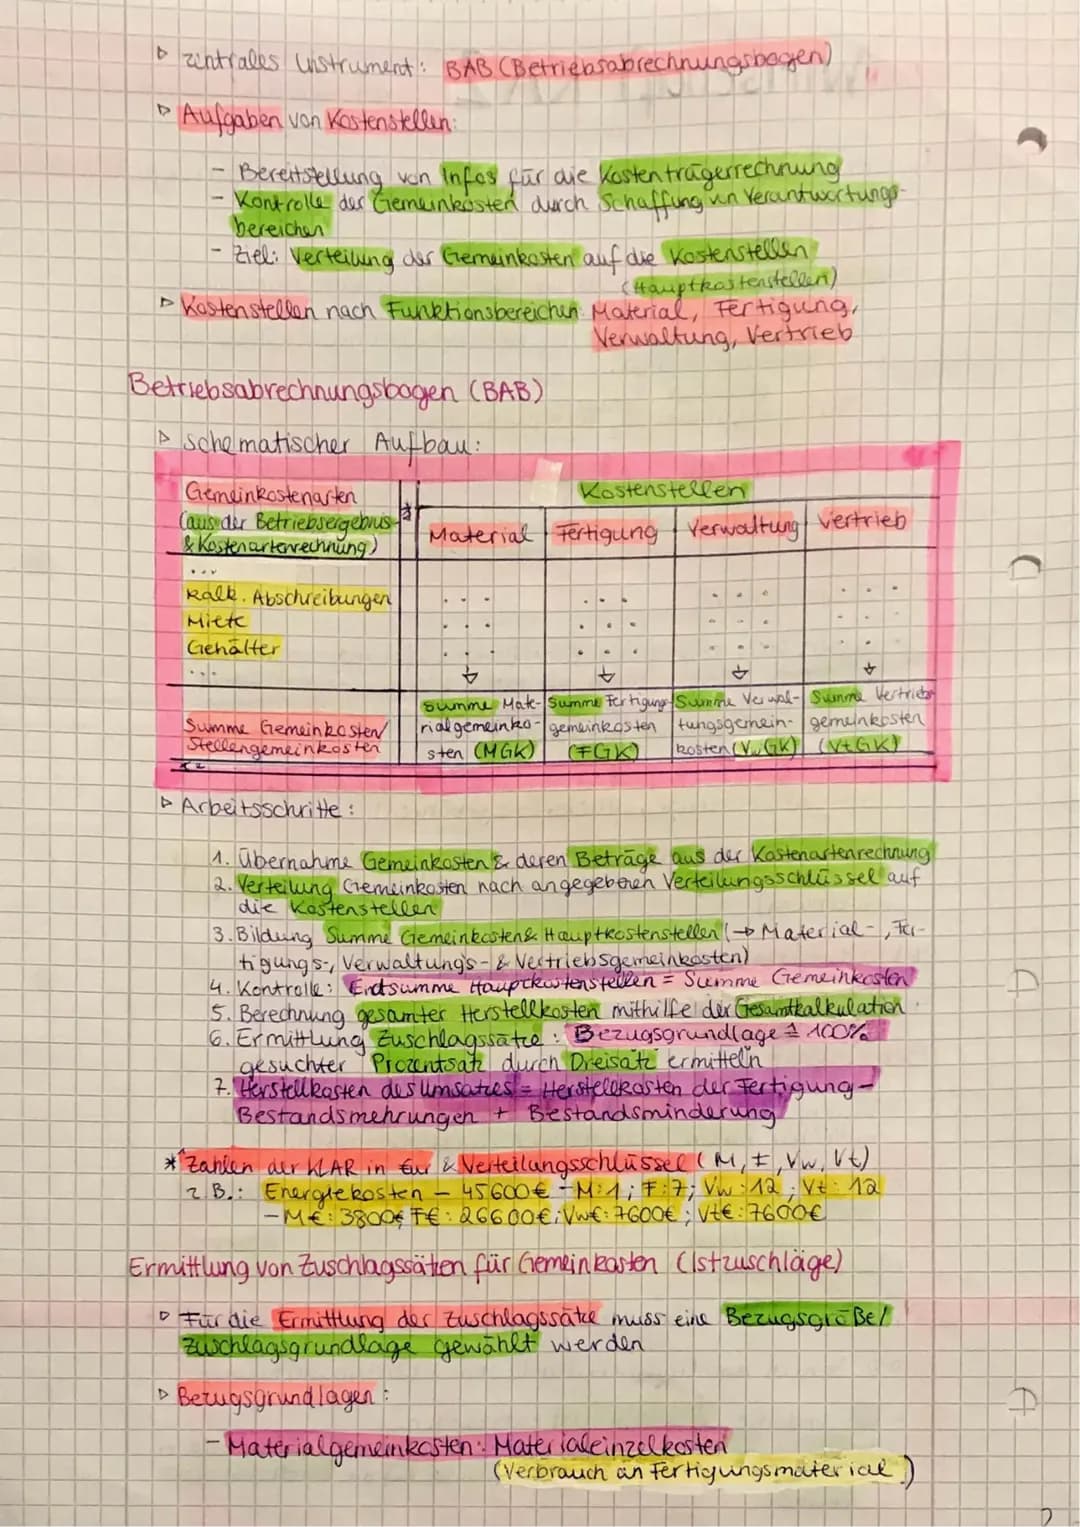 ▷ zentrales Instrument: BAB (Betriebsabrechnungsbogen)
▷ Aufgaben von Kostenstellen:
- Bereitstellung von Infos für die Kostenträgerrechnung
- Kontrolle der Gemeinkosten durch Schaffung von Verantwortungs-
bereichen
- Ziel: Verteilung der Gemeinkosten auf die Kostenstellen
(Hauptkostenstellen)
▷ Kostenstellen nach Funktionsbereichen: Material, Fertigung,
Verwaltung, Vertrieb
Betriebsabrechnungsbogen (BAB)
▷ schematischer Aufbau:
Gemeinkostenarten
(aus der Betriebsergebnis-
& Kostenartenrechnung)
*
Kostenstellen
Material Fertigung Verwaltung Vertrieb
...
kalk. Abschreibungen ... ... ... ...
Miete ... ... ... ...
Gehälter ... ... ... ...
...
Summe Gemeinkosten/
Stellengemeinkosten
Summe Mate-
rialgemeinko-
sten (MGK)
Summe Fertigungs
gemeinkosten
(FGK)
Summe Verwal-
tungsgemein-
kosten (VwGK)
Summe Vertriebs
gemeinkosten
(VtGK)
▷ Arbeitsschritte:
1. Übernahme Gemeinkosten & deren Beträge aus der Kostenartenrechnung
2. Verteilung Gemeinkosten nach angegebenen Verteilungsschlüssel auf
die Kostenstellen
3. Bildung Summe Gemeinkosten & Hauptkostenstellen (→ Material-, Fer-
tigungs-, Verwaltungs- & Vertriebsgemeinkosten)
4. Kontrolle: Endsumme Hauptkostenstellen = Summe Gemeinkosten
5. Berechnung gesamter Herstellkosten mithilfe der Gesamtkalkulation
6. Ermittlung Zuschlagssätze: Bezugsgrundlage ≙ 100%
gesuchter Prozentsatz durch Dreisatz ermitteln
7. Herstellkosten des Umsatzes = Herstellkosten der Fertigung -
Bestandsmehrungen + Bestandsminderung
* Zahlen der KLAR in Eur & Verteilungsschlüssel (M, F, Vw, Vt)
z.B.: Energiekosten - 45600€ - M:1; F:7; Vw:12; Vt:12
- M€: 3800€ F€: 26600€; Vw€: 7600€; Vt€: 7600€
Ermittlung von Zuschlagssätzen für Gemeinkosten (Istzuschläge)
▷ Für die Ermittlung der Zuschlagssätze muss eine Bezugsgröße/
Zuschlagsgrundlage gewählt werden
▷ Bezugsgrundlagen:
- Materialgemeinkosten: Materialeinzelkosten
(Verbrauch an Fertigungsmaterial)